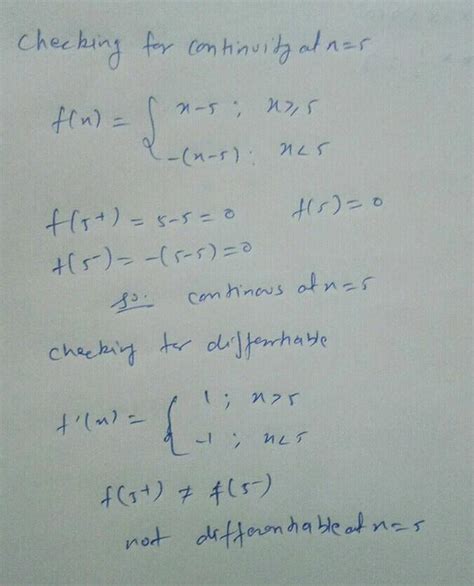 Checking for continuity at x=5
f(x) = { x-5 ; x≥5
-(x-5) ; x<5
f(5+) = 5-5=0 f(5)=0
f(5-) = -(5-5)=0
so. continous at x=5
checking for differntiable
f'(x) = { 1 ; x>5
-1 ; x<5
f(5+) ≠ f(5-)
not differentiable at x=5